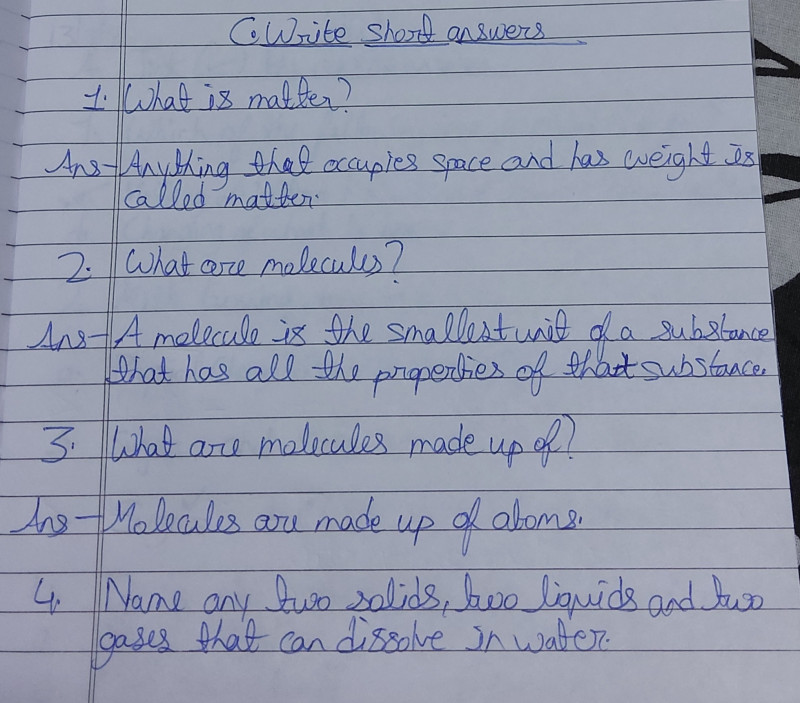 C. Write short answers
1. What is matter?
Ans- Anything that occupies space and has weight is
called matter.
2. What are molecules?
Ans- A molecule is the smallest unit of a substance
that has all the properties of that substance.
3. What are molecules made up of?
Ans- Molecules are made up of atoms.
4. Name any two solids, two liquids and two
gases that can dissolve in water.